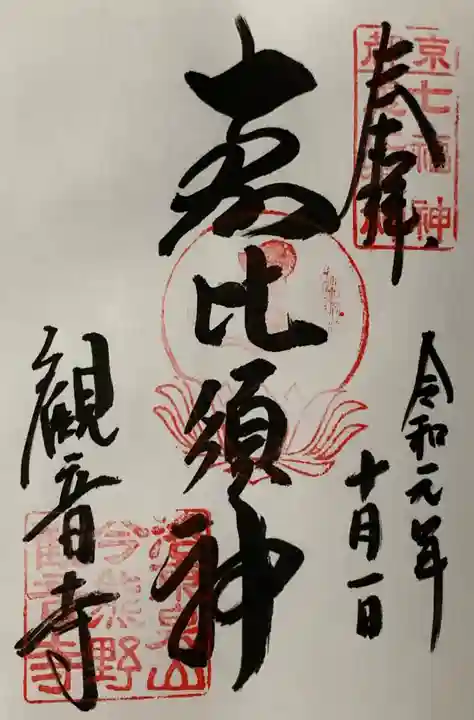 奉拝
京
七福神
令和元年
十月一日
恵比須神
観音寺
泉山
今熊野
観音寺